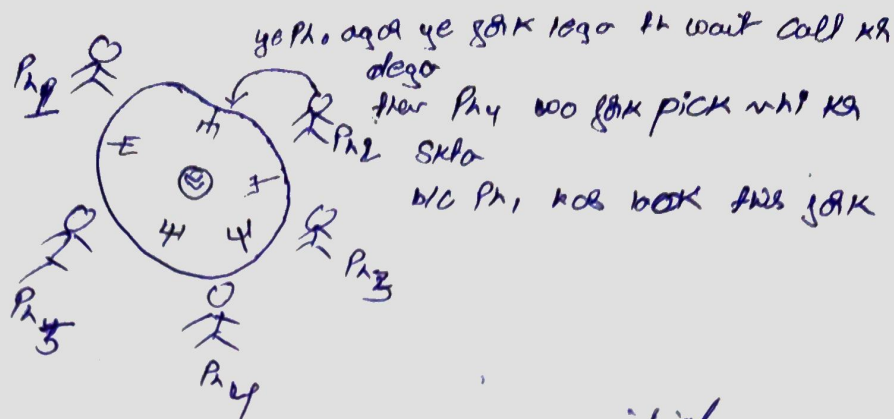 ye Ph. agar ye fork lega to wait Call kr
dega
then Ph4 woo fork pick nhi kr
skta
b/c Ph1 has book this fork
Ph1
Ph2
Ph3
Ph4
Ph5